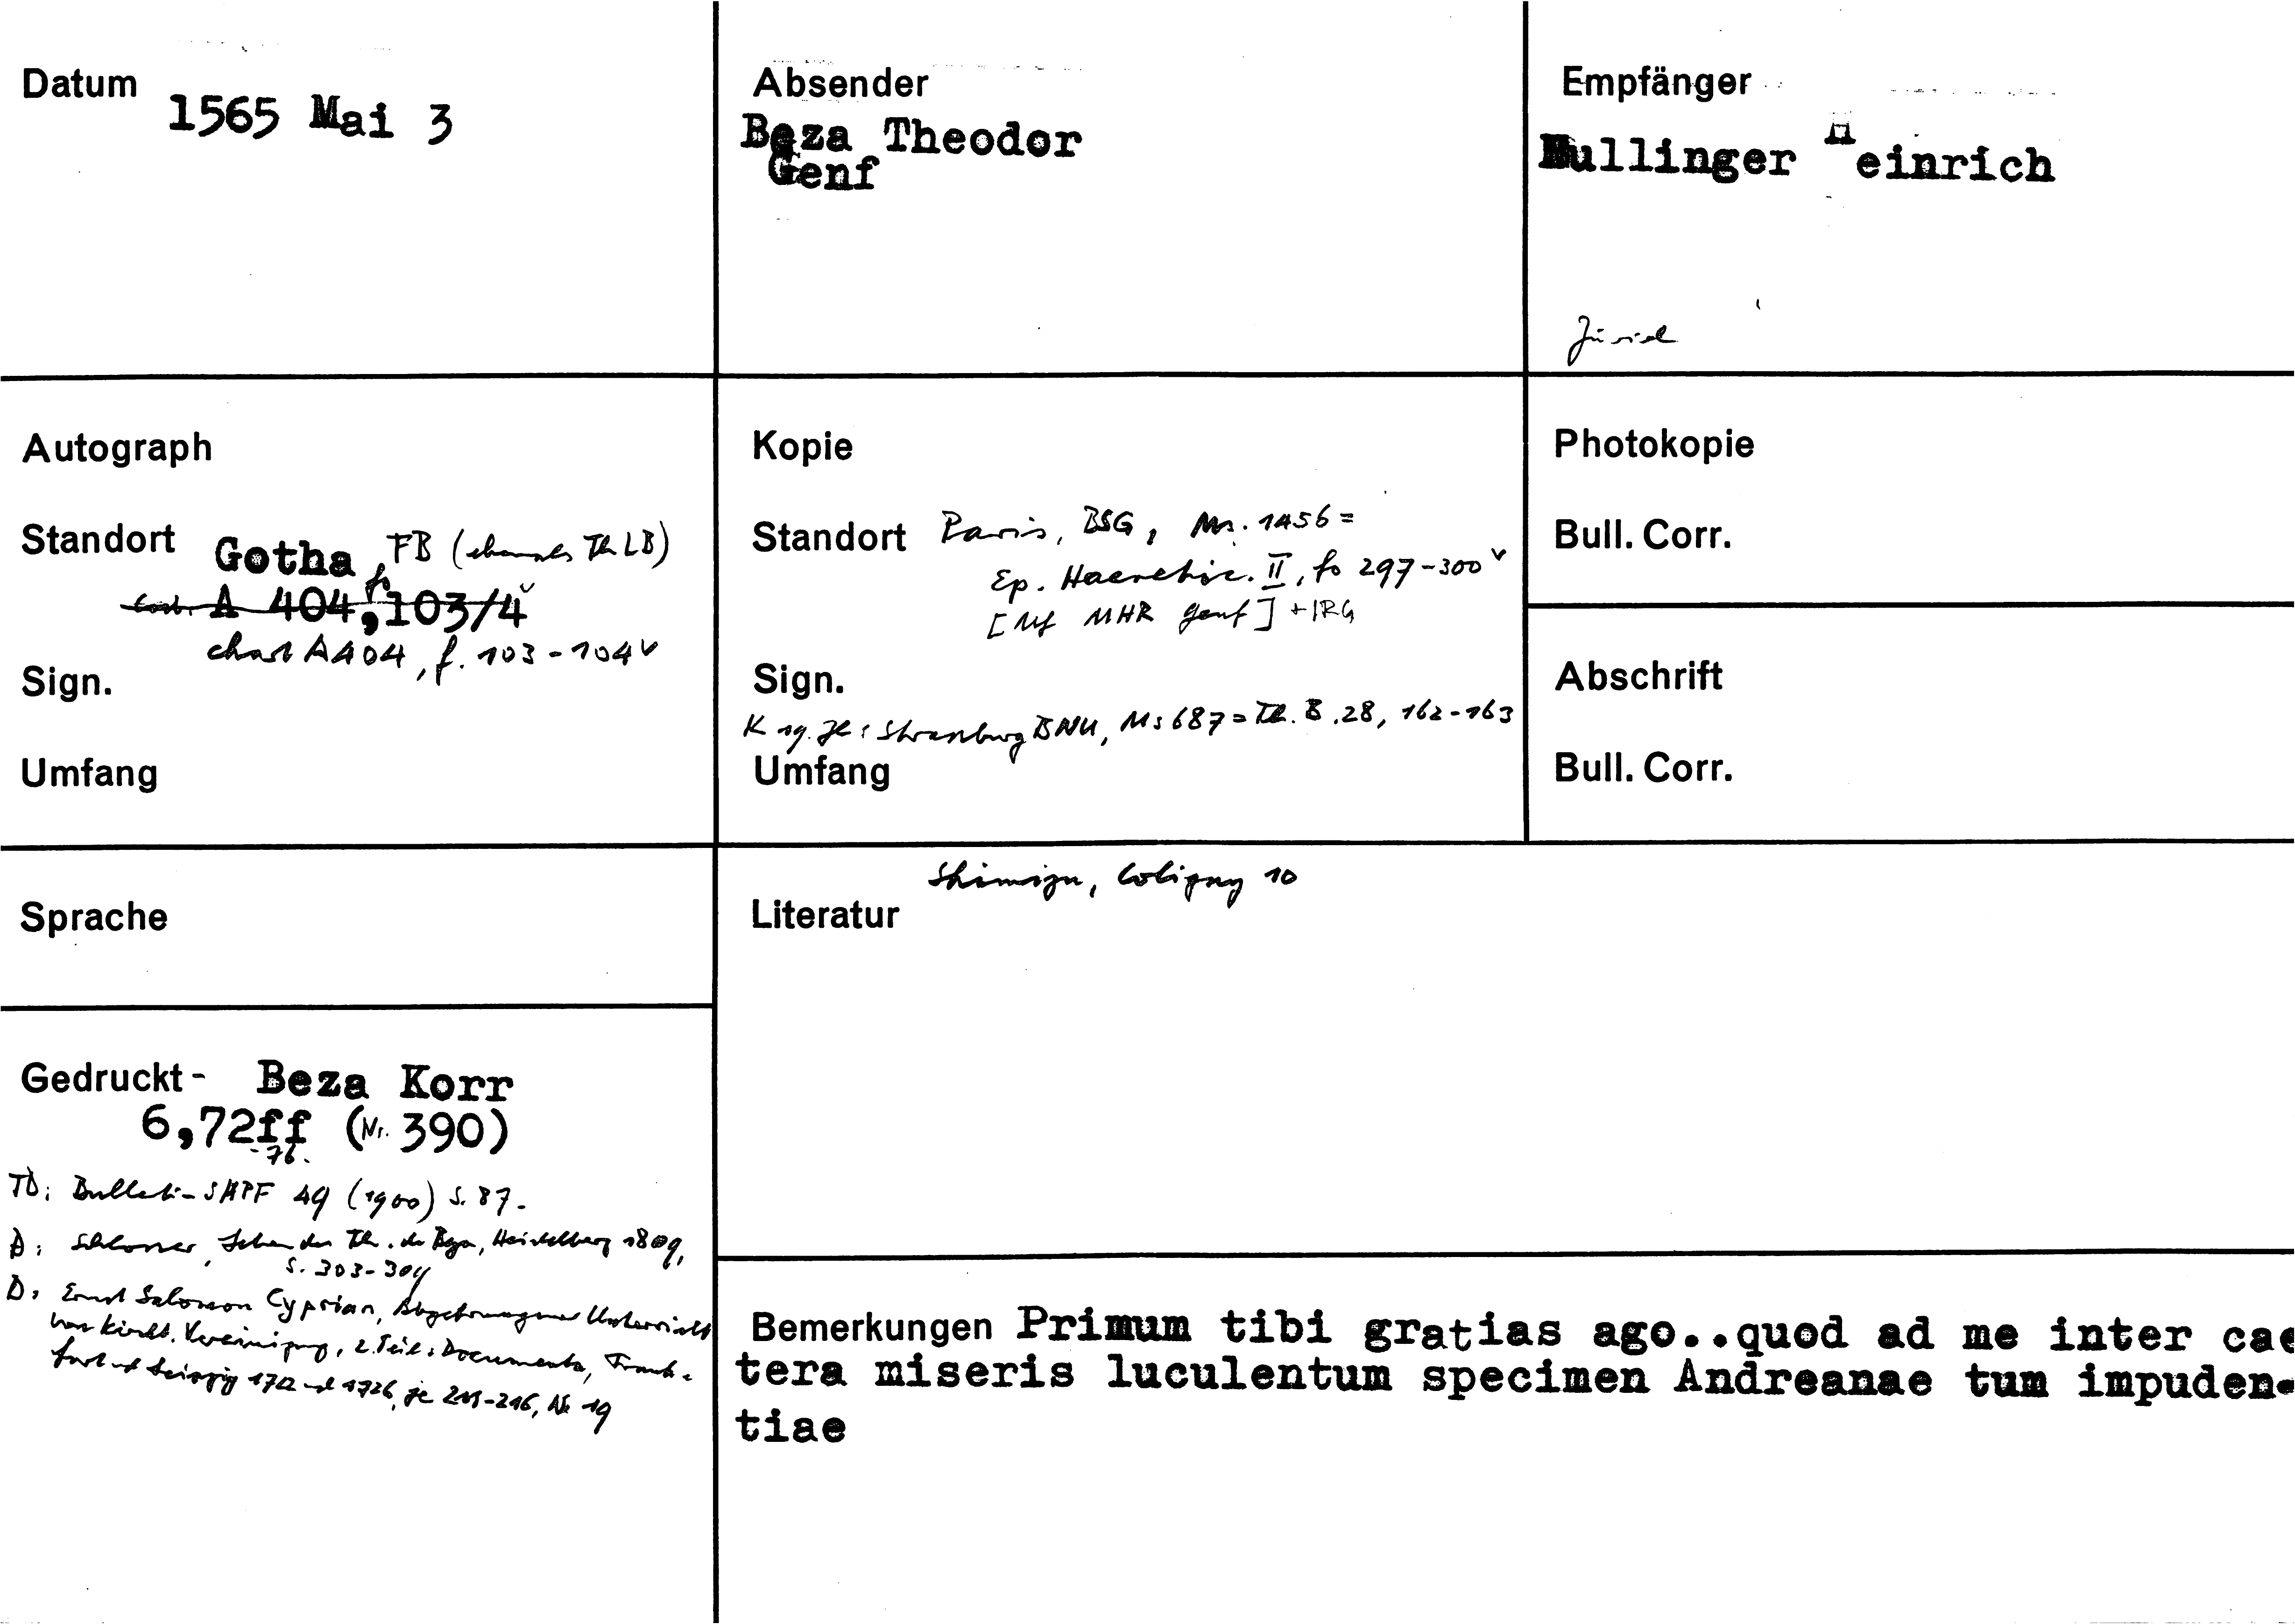 Datum 1565 Mai 3
Absender
Beza Theodor
Genf
Empfänger
Bullinger Heinrich
Zürich
Autograph
Standort Gotha, FB (ehemals Th LB)
Cod. A 404, fo 103/4v
chart A 404, f. 103-104v
Sign.
Umfang
Kopie
Standort Paris, BSG, Ms. 1456 =
Ep. Haeretic. II, fo 297-300v
[Mf MHR Genf] + IRG
Sign.
K 19. Jh: Strassburg BNU, Ms 687 = Th. B. 28, 162-163
Umfang
Photokopie
Bull. Corr.
Abschrift
Bull. Corr.
Sprache
Shimizu, Coligny 10
Literatur
Gedruckt - Beza Korr
6,72ff (Nr. 390)
-76.
TD: Bulletin SHPF 49 (1900) S. 87.
D: Schlosser, Leben des Th. de Beza, Heidelberg 1809,
S. 303-304
D: Ernst Salomon Cyprian, Abgetrungener Unterricht
von kirchl. Vereinigung, 2. Teil: Documenta, Frank-
furt und Leipzig 1722 und 1726, je 211-216, Nr 19
Bemerkungen Primum tibi gratias ago..quod ad me inter cae
tera miseris luculentum specimen Andreanae tum impuden-
tiae